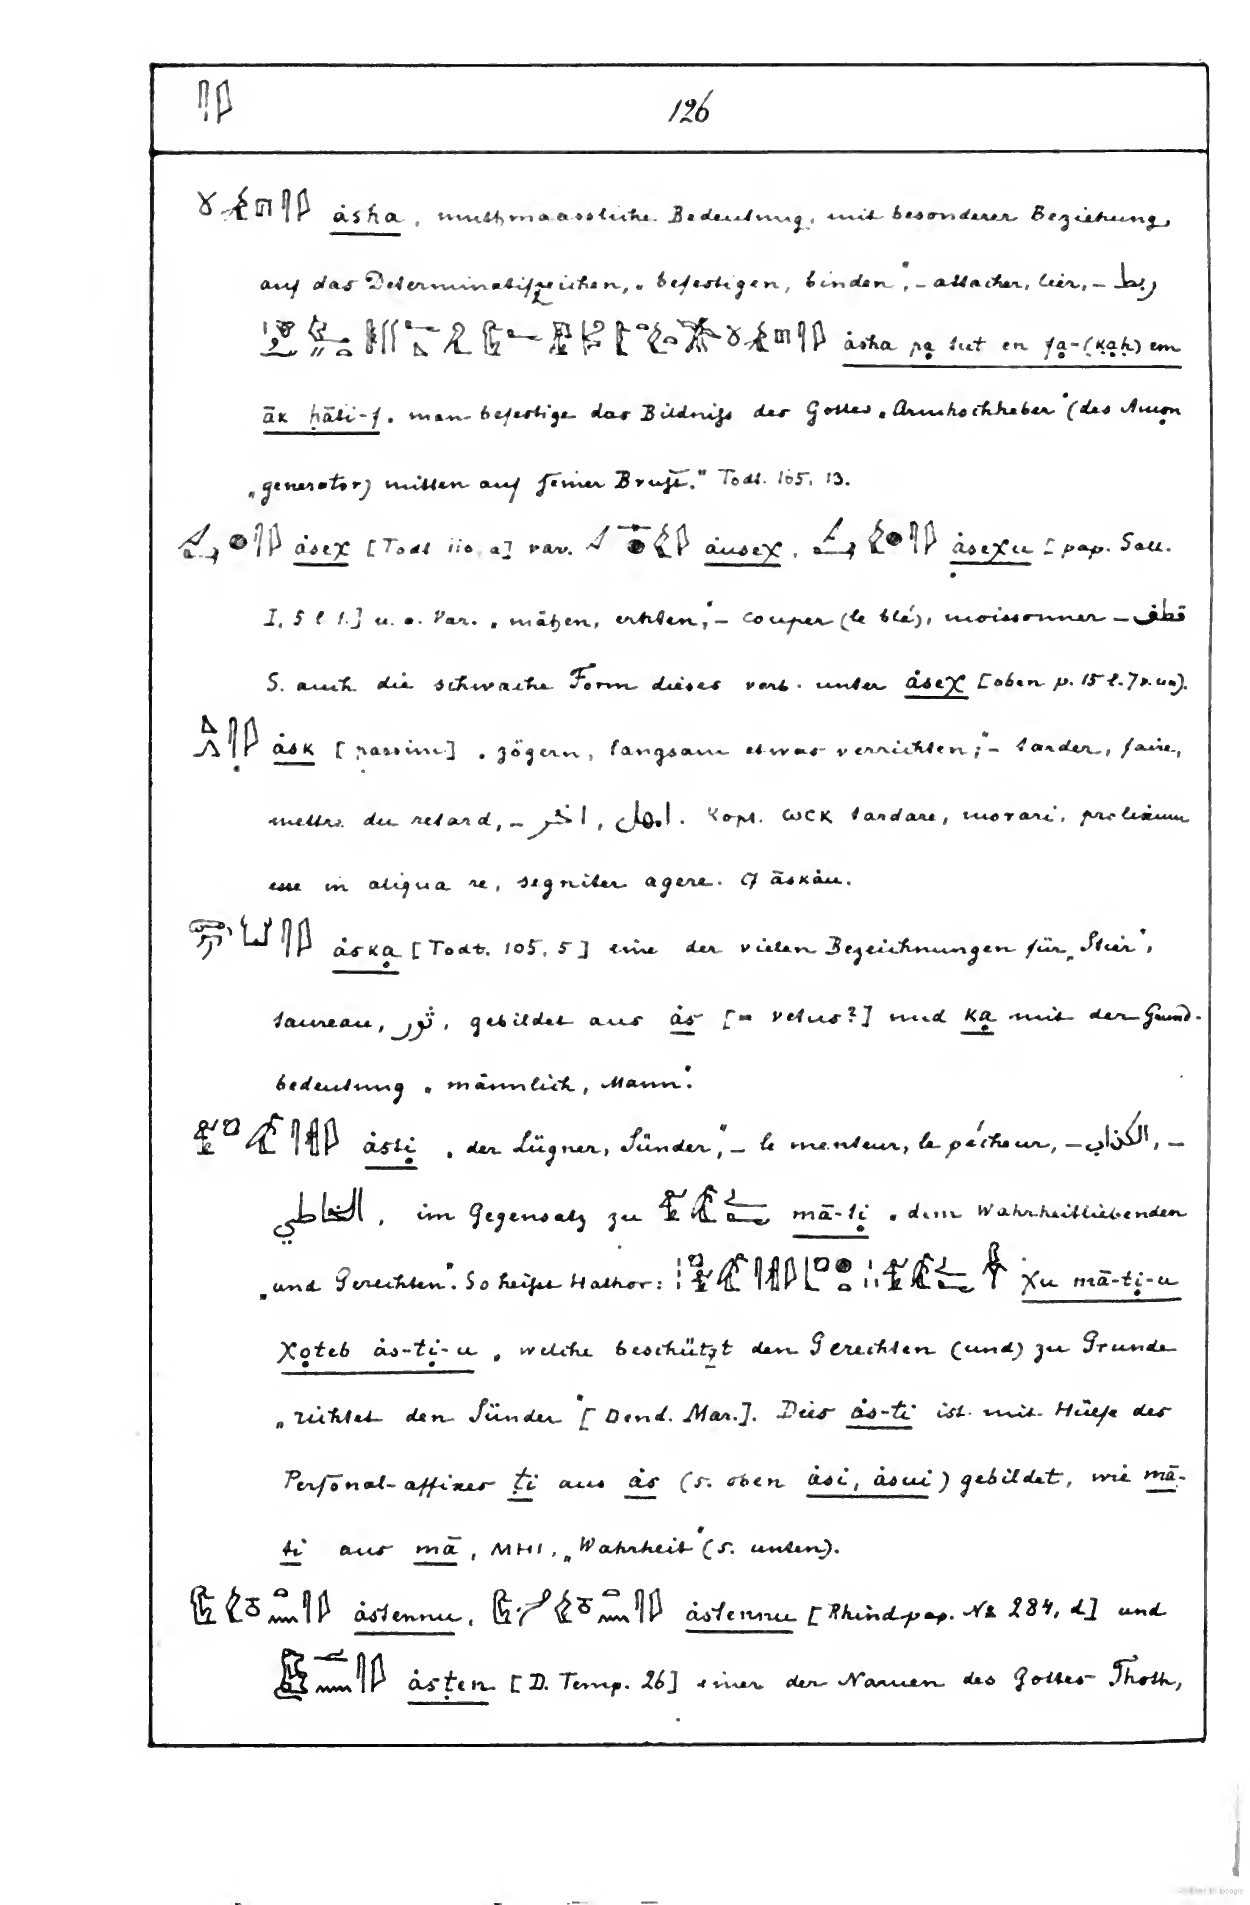 126
ȧsha, muthmaassliche Bedeutung, mit besonderer Beziehung
auf das Determinatifzeichen, „befestigen, binden", – attacher, lier, – ربط
ȧsha pa̤ tut en fa̤-(ḳa̤ḥ) em
āḳ ḥāti-f „man befestige das Bildniss des Gottes „Armhochheber" (des Amon
„generator) mitten auf seiner Brust." Todt. 165, 13.
ȧseχ [Todt 110, a] var. ȧuseχ, ȧseχu [pap. Sall.
I, 5 l. 1.] u. a. Var. „mähen, ernten", – couper (le blé), moissonner – قطف
S. auch die schwache Form dieses verb. unter ȧseχ [oben p. 15 l. 7 v. u.].
ȧsḳ [passim] „zögern, langsam etwas verrichten", – tarder, faire,
mettre du retard, – اخّر, امهل. Kopt. ⲱⲥⲕ tardare, morari, prolixum
esse in aliqua re, segniter agere. Cf āsḳȧu.
ȧska̤ [Todt. 105, 5] eine der vielen Bezeichnungen für „Stier",
taureau, ثور, gebildet aus ȧs [= vetus?] und ka̤ mit der Grund-
bedeutung „männlich, Mann".
ȧsti̤ „der Lügner, Sünder", – le menteur, le pécheur, – الكذاب, –
الخاطي, im Gegensatz zu mā-ti̤ „dem Wahrheitliebenden
„und Gerechten". So heisst Hathor: χu mā-ti̤-u
χo̤teb ȧs-ti̤-u „welche beschützt den Gerechten (und) zu Grunde
„richtet den Sünder" [Dend. Mar.]. Dies ȧs-ti ist mit Hülfe des
Personal-affixes ṭi aus ȧs (s. oben ȧsi, ȧsui) gebildet, wie mā-
ti aus mā, ⲙⲏⲓ, „Wahrheit" (s. unten).
ȧstennu, ȧstennu [Rhind-pap. № 284, d] und
ȧsṭen [D. Temp. 26] einer der Namen des Gottes Thoth,